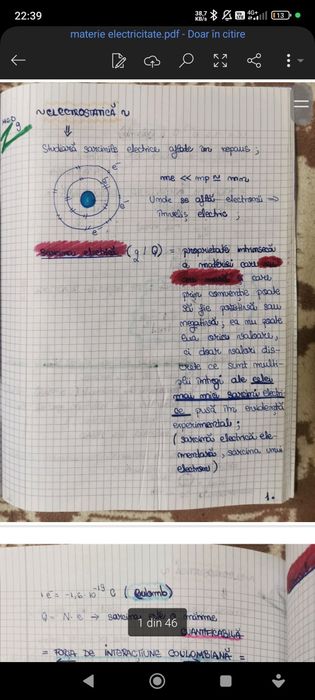 22:39
38,7 KB/s
4G+
13
materie electricitate.pdf - Doar în citire
~ ELECTROSTATICĂ ~
Studiază sarcinile electrice aflate în repaus ;
me << mp ≅ mn
Unde se află electronii ⇒
înveliș electric ;
e⁻
e⁻
e⁻
Sarcina electrică (q / Q) = proprietate intrinsecă
a materiei care
care
prin convenție poate
să fie pozitivă sau
negativă, ea nu poate
lua orice valoare,
ci doar valori dis-
crete ce sunt multi-
plii întregi ale celei
mai mici sarcini electri-
ce pusă în evidență
experimental ;
(sarcină electrică ele-
mentară, sarcina unui
electron)
1.
1e⁻ = -1,6 · 10⁻¹⁹ C (Coulomb)
Q = N · e → sarcina o mărime
1 din 46
CUANTIFICABILĂ
= FORȚA DE INTERACȚIUNE COULOMBIANĂ =